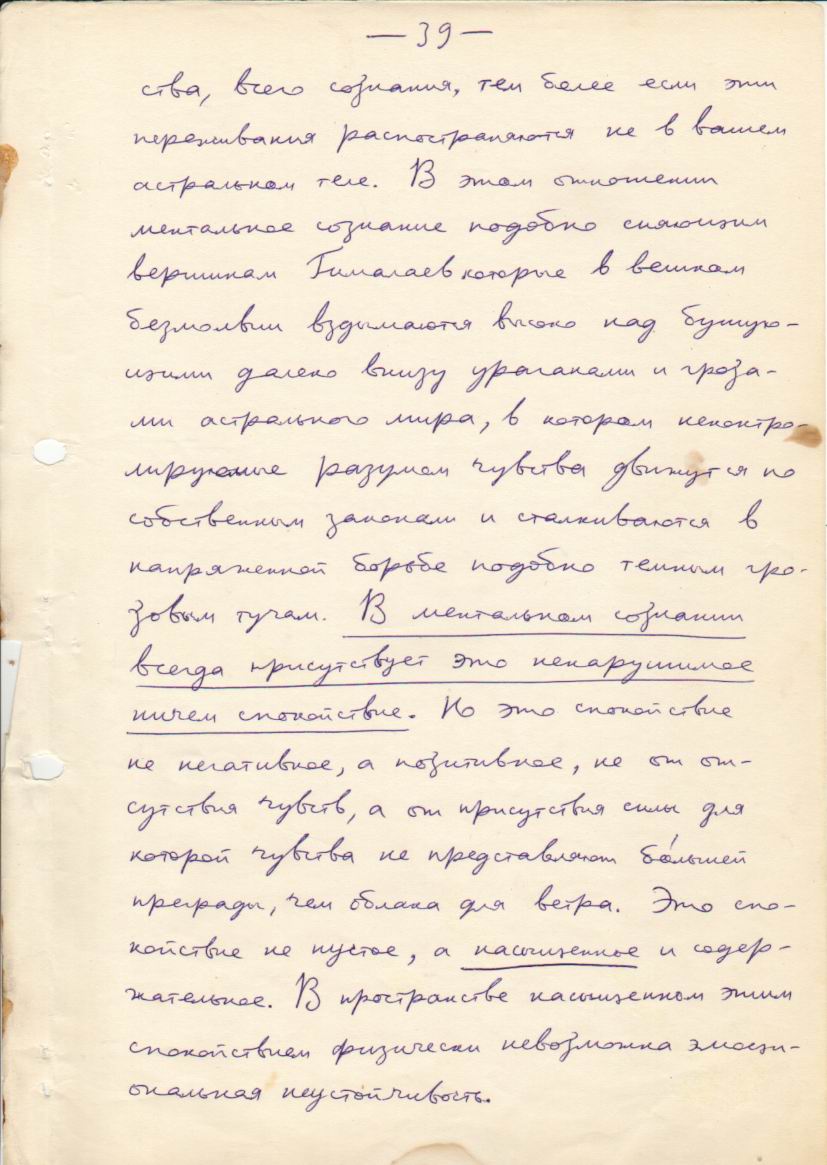 — 39 —
ства, всего сознания, тем более если эти
переживания распостраняются не в вашем
астральном теле. В этом отношении
ментальное сознание подобно сияющим
вершинам Гималаев которые в великом
безмолвии вздымаются высоко над бушую-
щими далеко внизу ураганами и гроза-
ми астрального мира, в котором неконтро-
лируемые разумом чувства движутся по
собственным законам и сталкиваются в
напряженной борьбе подобно темным гро-
зовым тучам. В ментальном сознании
всегда присутствует это ненарушимое
ничем спокойствие. Но это спокойствие
не негативное, а позитивное, не от от-
сутствия чувств, а от присутствия силы для
которой чувства не представляют бо́льшей
преграды, чем облака для ветра. Это спо-
койствие не пустое, а насыщенное и содер-
жательное. В пространстве насыщенном этим
спокойствием физически невозможна эмоци-
ональная неустойчивость.